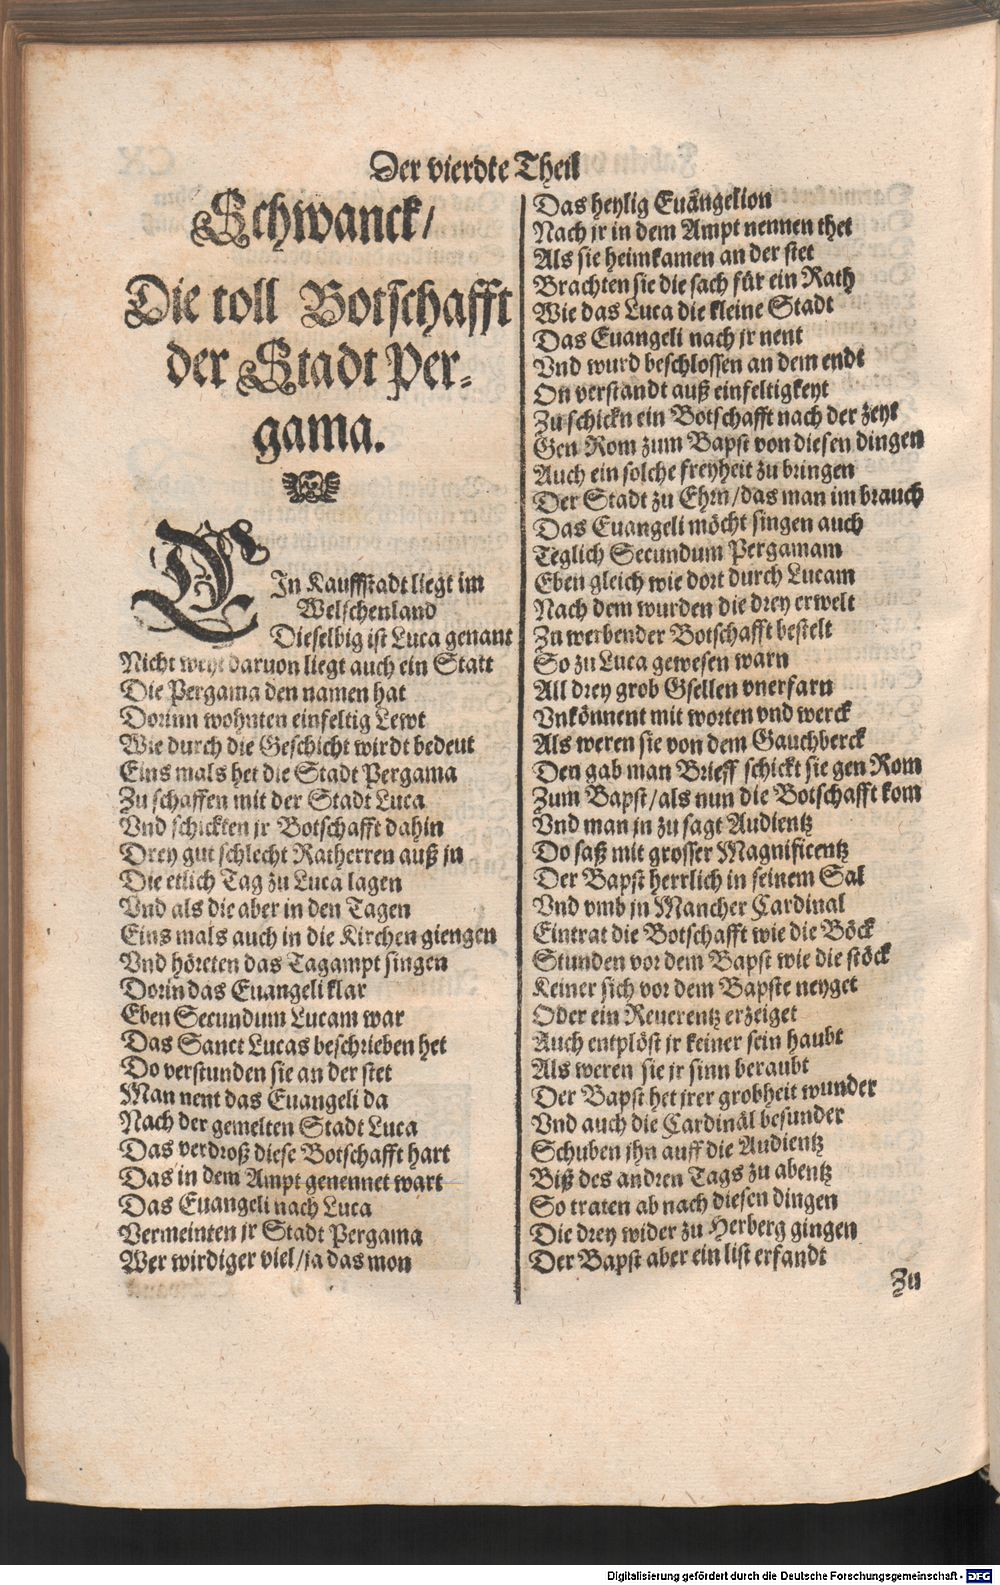 Der vierdte Theil
Schwanck/
Die toll Botschafft
der Stadt Per-
gama.
EIn Kauffstadt liegt im
Welschenland
Dieselbig ist Luca genant
Nicht weyt daruon liegt auch ein Statt
Die Pergama den namen hat
Dorinn wohnten einfeltig Lewt
Wie durch die Geschicht wirdt bedeut
Eins mals het die Stadt Pergama
Zu schaffen mit der Stadt Luca
Vnd schickten jr Botschafft dahin
Drey gut schlecht Ratherren auß jn
Die etlich Tag zu Luca lagen
Vnd als die aber in den Tagen
Eins mals auch in die Kirchen giengen
Vnd höreten das Tagampt singen
Dorin das Euangeli klar
Eben Secundum Lucam war
Das Sanct Lucas beschrieben het
Do verstunden sie an der stet
Man nent das Euangeli da
Nach der gemelten Stadt Luca
Das verdroß diese Botschafft hart
Das in dem Ampt genennet wart
Das Euangeli nach Luca
Vermeinten jr Stadt Pergama
Wer wirdiger viel/ja das mon
Das heylig Euangelion
Nach jr in dem Ampt nennen thet
Als sie heimkamen an der stet
Brachten sie die sach für ein Rath
Wie das Luca die kleine Stadt
Das Euangeli nach jr nent
Vnd wurd beschlossen an dem endt
On verstandt auß einfeltigkeyt
Zu schickn ein Botschafft nach der zeyt
Gen Rom zum Bapst von diesen dingen
Auch ein solche freyheit zu bringen
Der Stadt zu Ehrn/das man im brauch
Das Euangeli möcht singen auch
Teglich Secundum Pergamam
Eben gleich wie dort durch Lucam
Nach dem wurden die drey erwelt
Zu werbender Botschafft bestelt
So zu Luca gewesen warn
All drey grob Gsellen vnerfarn
Vnkönnent mit worten vnd werck
Als weren sie von dem Gauchberck
Den gab man Brieff schickt sie gen Rom
Zum Bapst/als nun die Botschafft kom
Vnd man jn zu sagt Audientz
Do saß mit grosser Magnificentz
Der Bapst herrlich in seinem Sal
Vnd vmb jn Mancher Cardinal
Eintrat die Botschafft wie die Böck
Stunden vor dem Bapst wie die stöck
Keiner sich vor dem Bapste neyget
Oder ein Reuerentz erzeiget
Auch entplöst jr keiner sein haubt
Als weren sie jr sinn beraubt
Der Bapst het jrer grobheit wunder
Vnd auch die Cardinäl besunder
Schuben jhn auff die Audientz
Biß des andren Tags zu abentz
So traten ab nach diesen dingen
Die drey wider zu Herberg gingen
Der Bapst aber ein list erfandt
Zu
Digitalisierung gefördert durch die Deutsche Forschungsgemeinschaft - DFG